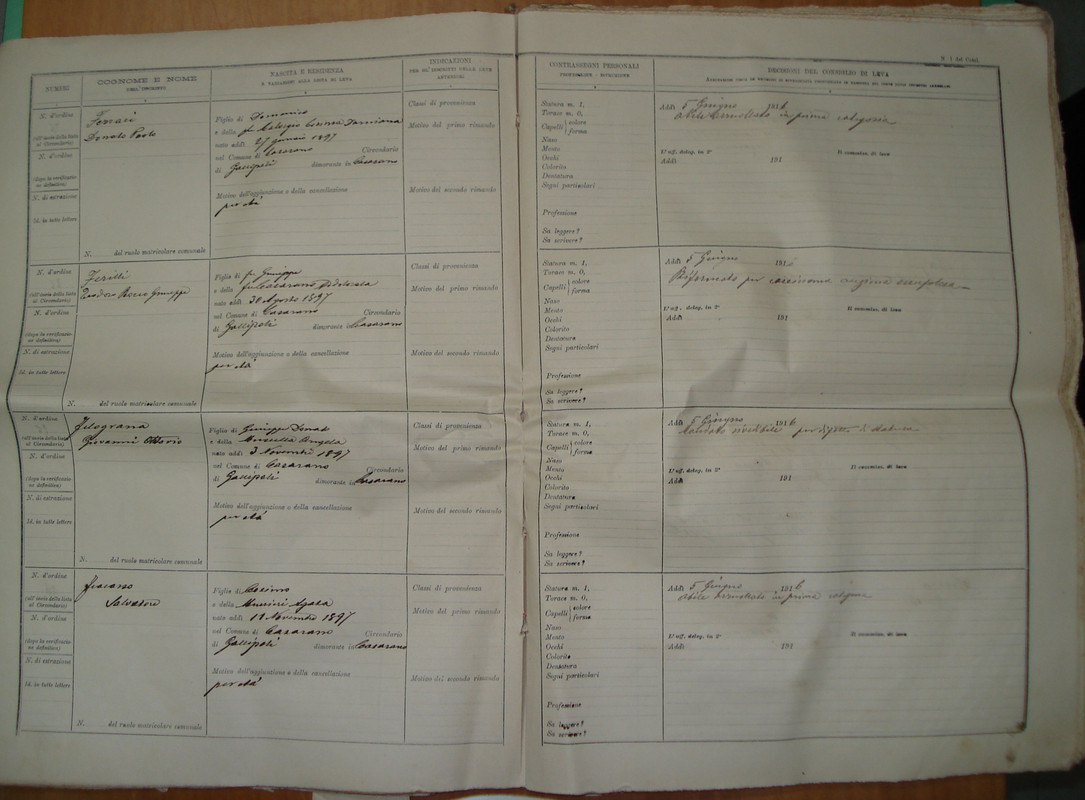 NUMERI
COGNOME E NOME
DELL'ISCRITTO
NASCITA E RESIDENZA
E VARIAZIONI ALLA LISTA DI LEVA
INDICAZIONI
PER GL'ISCRITTI DELLE LEVE
ANTERIORI
N. d'ordine
(all'uscio della lista
al Circondario)
N. d'ordine
(dopo la verificazio-
ne definitiva)
N. di estrazione
Id. in tutte lettere
Ferrari
Donato Paolo
N. del ruolo matricolare comunale
Figlio di Domenico
e della fu
nato addì 27 gennaio 1897
nel Comune di Casarano Circondario
di Gallipoli dimorante in Casarano
Motivo dell'aggiunzione o della cancellazione
per età
Classi di provenienza
Motivo del primo rimando
Motivo del secondo rimando
N. d'ordine
al Circondario)
N. d'ordine
(dopo la verificazio-
ne definitiva)
N. di estrazione
Id. in tutte lettere
Ferilli
Rocco Giuseppe
N. del ruolo matricolare comunale
Figlio di fu Giuseppe
e della fu Casarano Addolorata
nato addì 30 Agosto 1897
nel Comune di Casarano Circondario
di Gallipoli dimorante in Casarano
Motivo dell'aggiunzione o della cancellazione
per età
Classi di provenienza
Motivo del primo rimando
Motivo del secondo rimando
N. d'ordine
al Circondario)
N. d'ordine
(dopo la verificazio-
ne definitiva)
N. di estrazione
Id. in tutte lettere
Filograna
Giovanni Ottavio
N. del ruolo matricolare comunale
Figlio di Giuseppe Donato
e della Angela
nato addì 3 Novembre 1897
nel Comune di Casarano Circondario
di Gallipoli dimorante in Casarano
Motivo dell'aggiunzione o della cancellazione
per età
Classi di provenienza
Motivo del primo rimando
Motivo del secondo rimando
N. d'ordine
al Circondario)
N. d'ordine
(dopo la verificazio-
ne definitiva)
N. di estrazione
Id. in tutte lettere
Fracasso
Salvatore
N. del ruolo matricolare comunale
Figlio di Cosimo
e della Agata
nato addì Novembre 1897
nel Comune di Casarano Circondario
di Gallipoli dimorante in Casarano
Motivo dell'aggiunzione o della cancellazione
per età
Classi di provenienza
Motivo del primo rimando
Motivo del secondo rimando
CONTRASSEGNI PERSONALI
PROFESSIONE - ISTRUZIONE
DECISIONI DEL CONSIGLIO DI LEVA
Statura m. 1,
Torace m. 0,
Capelli colore
forma
Naso
Mento
Occhi
Colorito
Dentatura
Segni particolari
Professione
Sa leggere?
Sa scrivere?
Addì 5 Giugno 1916
Abile arruolato in prima categoria
L'uff. deleg. in 2° Il commiss. di leva
Addì 191
Statura m. 1,
Torace m. 0,
Capelli colore
forma
Naso
Mento
Occhi
Colorito
Dentatura
Segni particolari
Professione
Sa leggere?
Sa scrivere?
Addì 5 Giugno 191
Riformato per
L'uff. deleg. in 2° Il commiss. di leva
Addì 191
Statura m. 1,
Torace m. 0,
Capelli colore
forma
Naso
Mento
Occhi
Colorito
Dentatura
Segni particolari
Professione
Sa leggere?
Sa scrivere?
Addì 5 Giugno 1916
rivedibile per
L'uff. deleg. in 2° Il commiss. di leva
Addì 191
Statura m. 1,
Torace m. 0,
Capelli colore
forma
Naso
Mento
Occhi
Colorito
Dentatura
Segni particolari
Professione
Sa leggere?
Sa scrivere?
Addì 5 Giugno 1916
Abile arruolato in prima categoria
L'uff. deleg. in 2° Il commiss. di leva
Addì 191